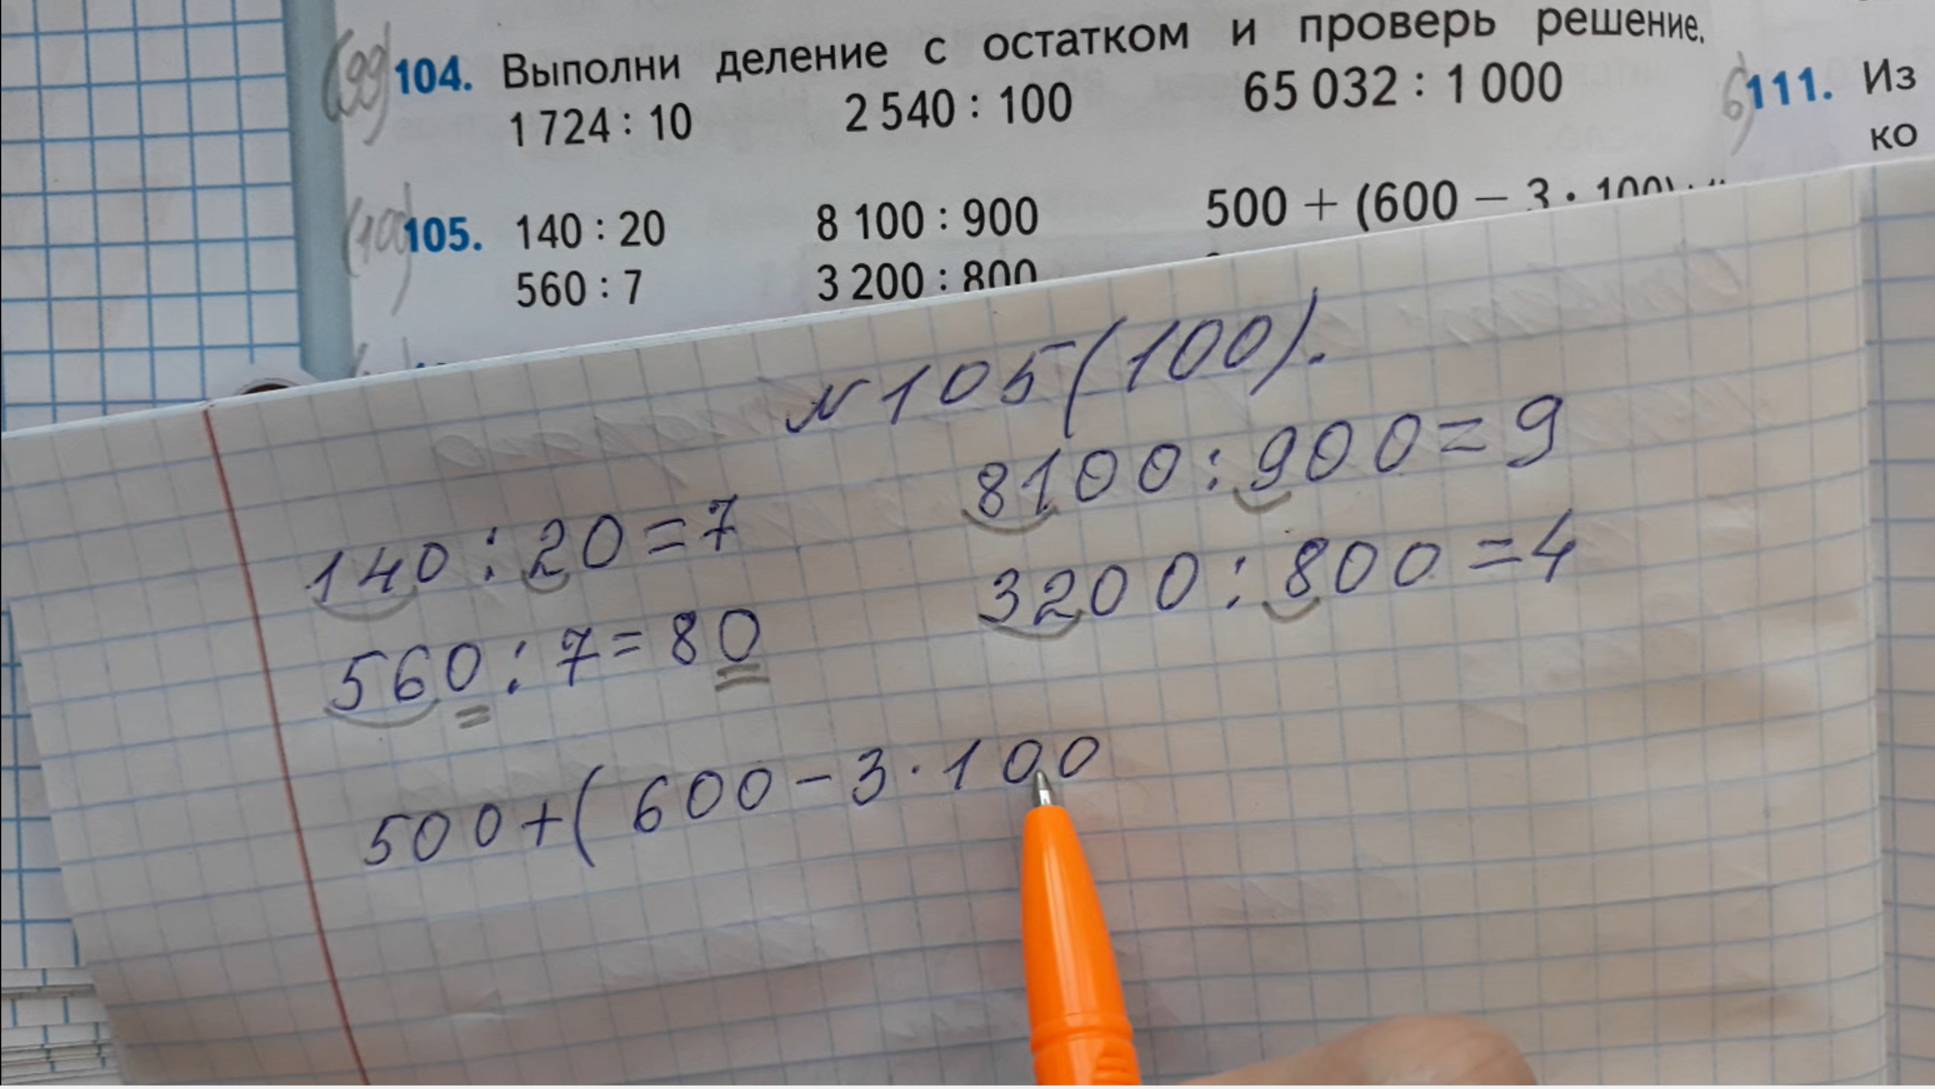 (99) 104. Выполни деление с остатком и проверь решение.
1 724 : 10 2 540 : 100 65 032 : 1 000
6) 111. Из
ко
(100) 105. 140 : 20 8 100 : 900 500 + (600 − 3 · 100)
560 : 7 3 200 : 800
№105(100).
140 : 20 = 7 8100 : 900 = 9
560 : 7 = 80 3200 : 800 = 4
500 + ( 600 − 3 · 100